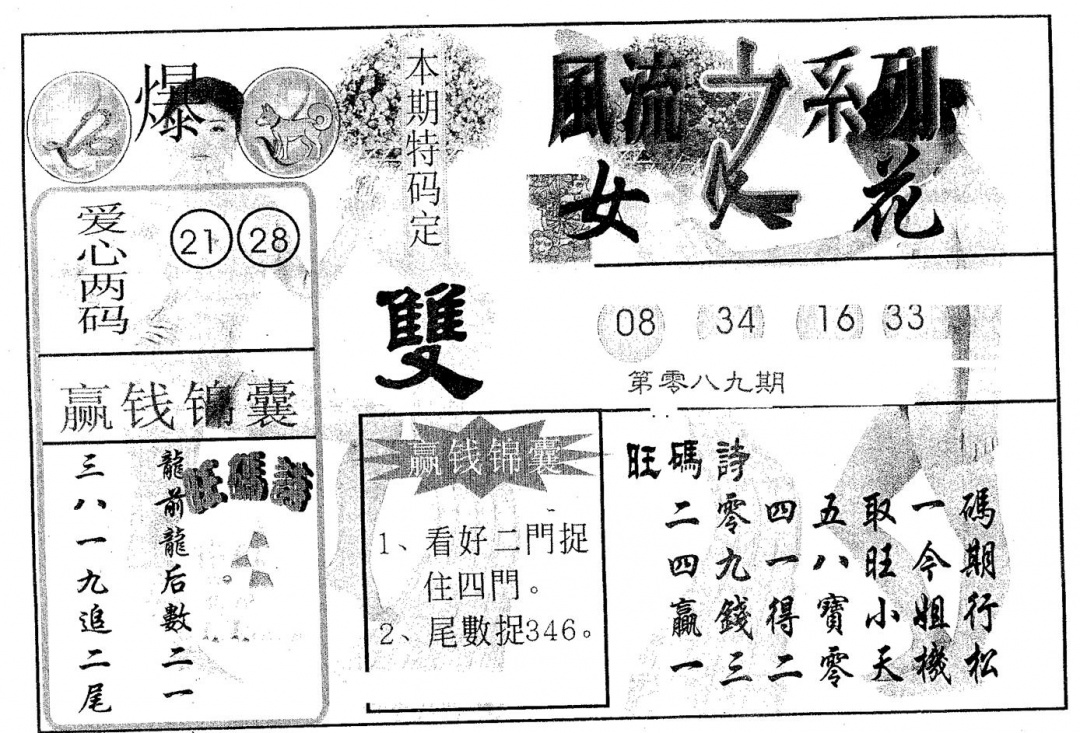 爆
本期特码定
雙
風流之系列
女人花
爱心两码
21 28
赢钱锦囊
旺碼詩
龍前龍后數二一
三八一九追二尾
08 34 16 33
第零八九期
赢钱锦囊
1、看好二門捉
住四門。
2、尾數捉346。
旺碼詩
碼期行松
一今姐機
取旺小天
五八寶零
四一得二
零九錢三
二四贏一